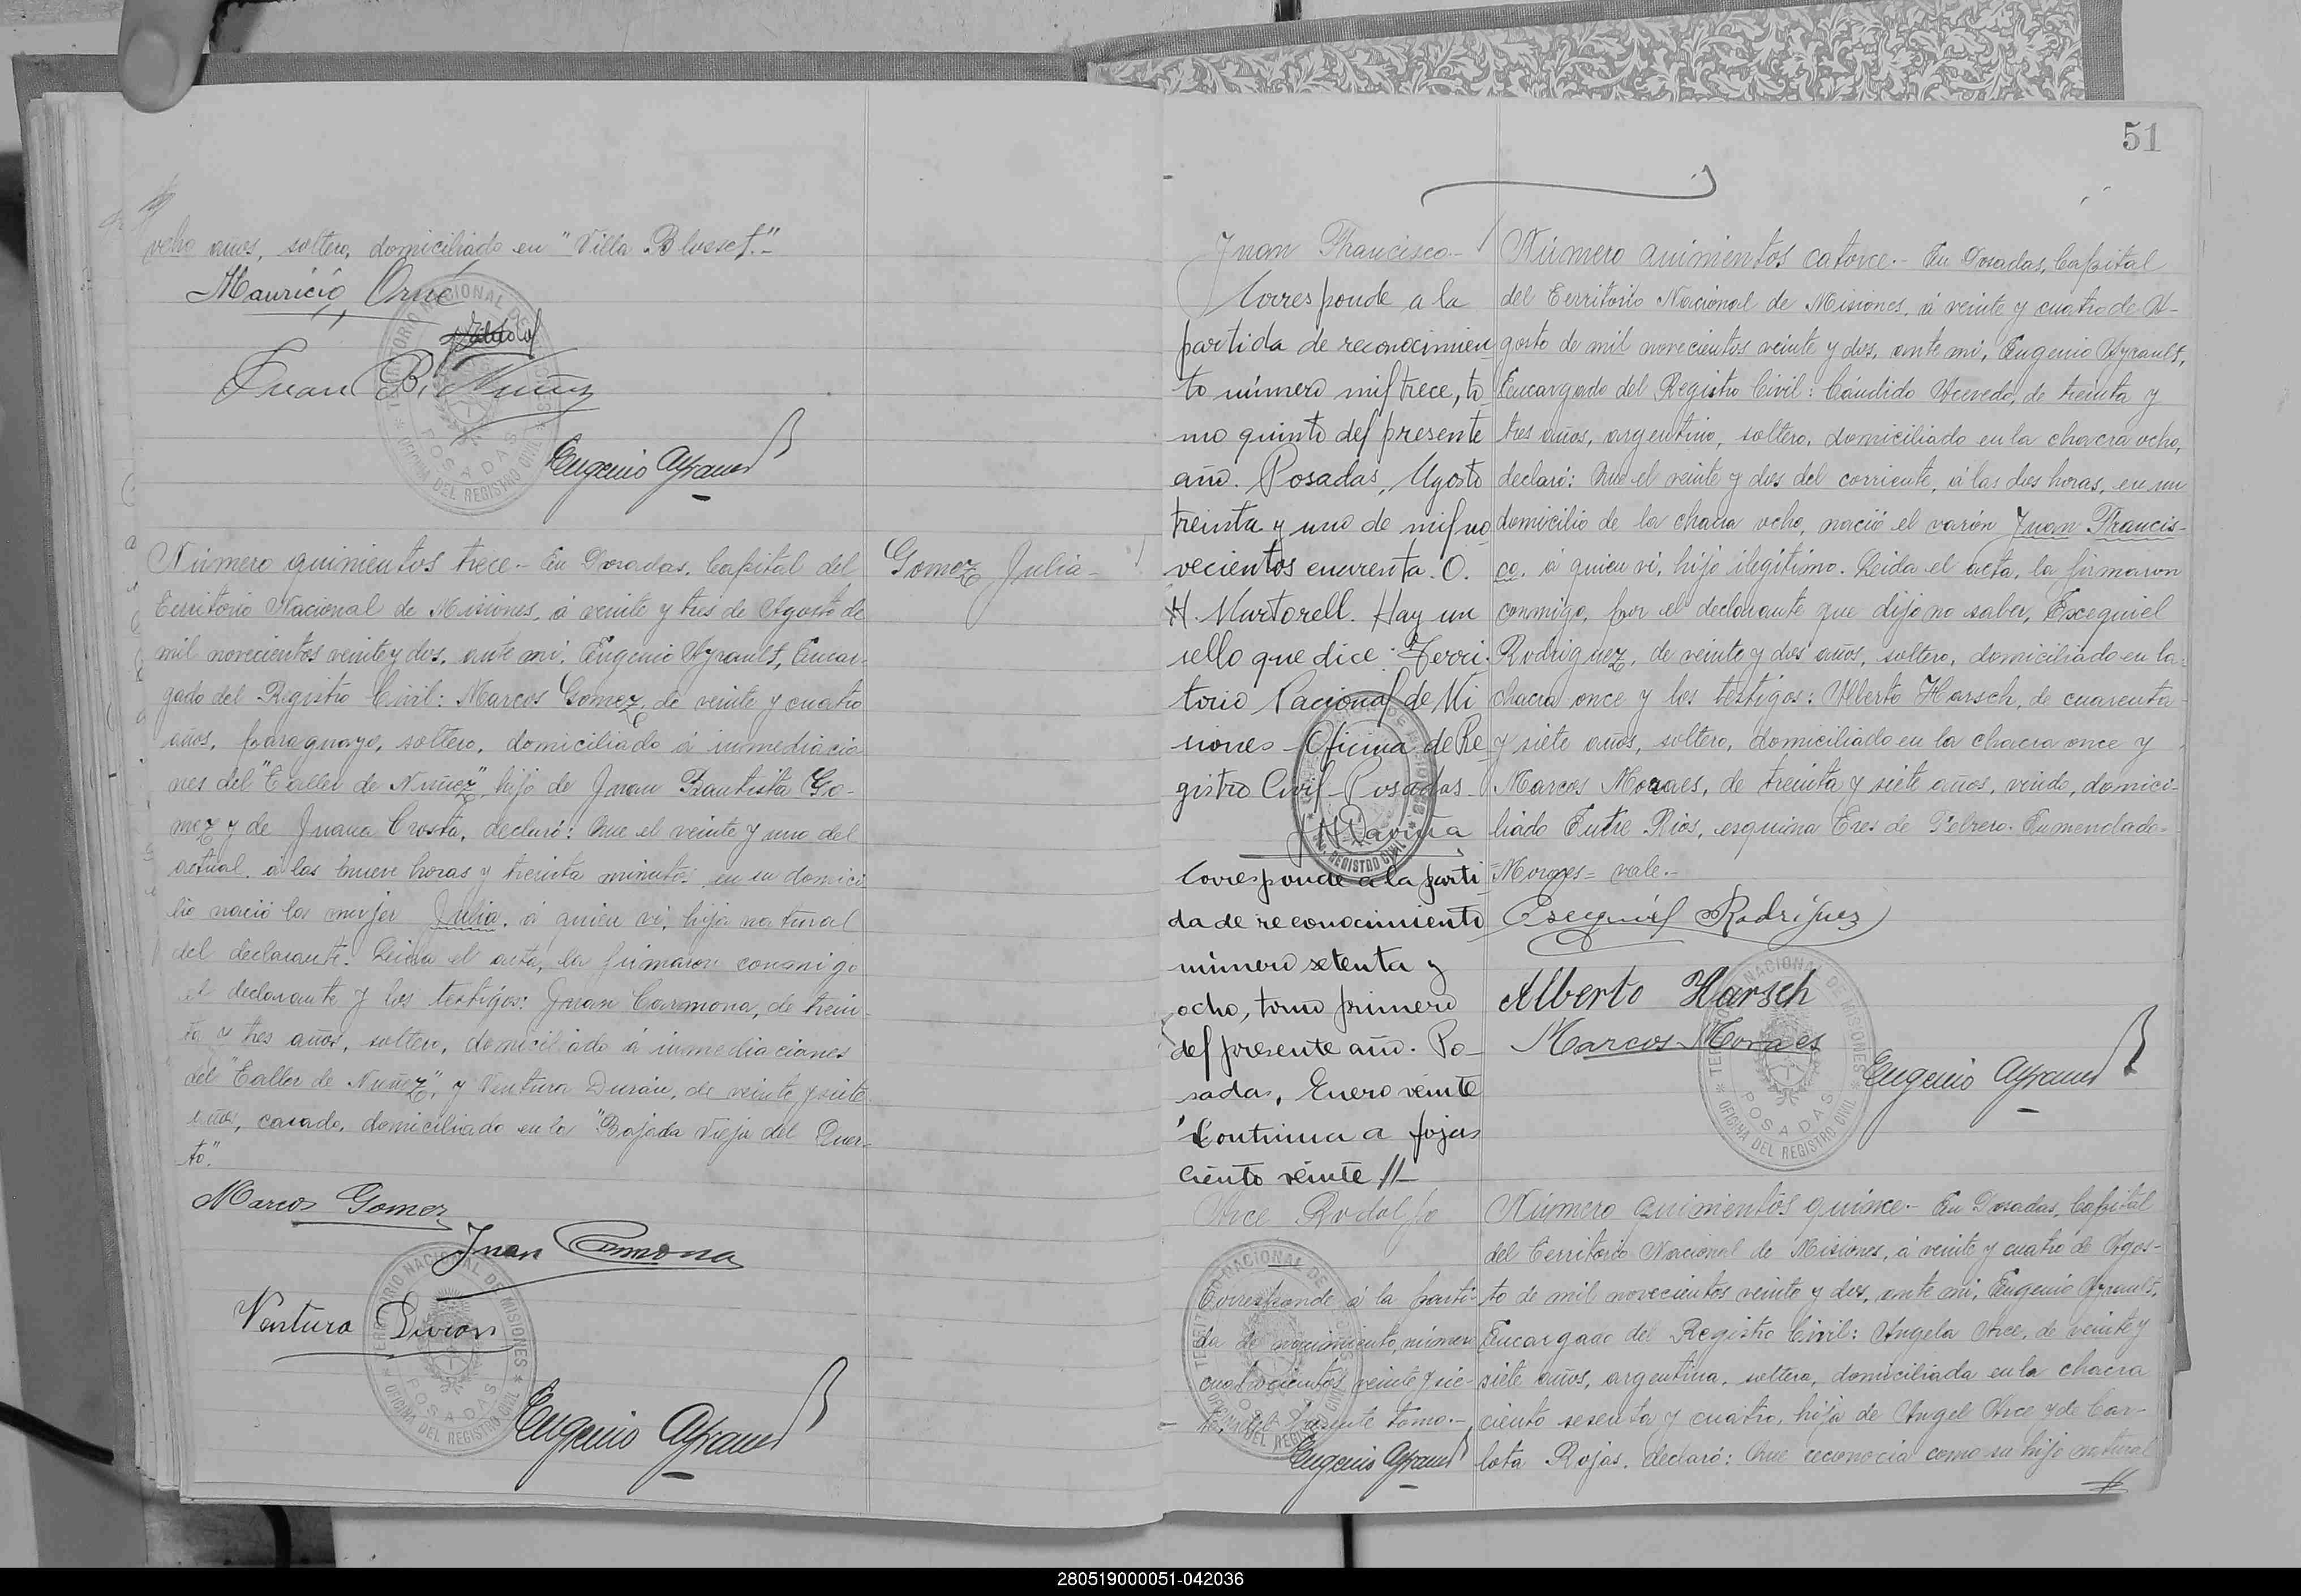 ocho años, soltero, domiciliado en "Villa Blosset."-
Mauricio Orué
Juan B. Nuñez
Eugenio Ayrault
Número quinientos trece.- En Posadas, Capital del
Territorio Nacional de Misiones, á veinte y tres de Agosto de
mil novecientos veinte y dos, ante mi, Eugenio Ayrault, Encar-
gado del Registro Civil: Marcos Gomez, de veinte y cuatro
años, paraguayo, soltero, domiciliado á inmediacio
nes del "Taller de Nuñez", hijo de Juan Bautista Go-
mez y de Juana Crosta, declaró: Que el veinte y uno del
actual, á las nueve horas y treinta minutos, en su domici
lio nació la mujer Julia, á quien vi, hija natural
del declarante. Leida el acta, la firmaron conmigo
el declarante y los testigos: Juan Carmona, de trein-
ta y tres años, soltero, domiciliado á inmediaciones
del "Taller de Nuñez", y Ventura Durán, de veinte y siete
años, casado, domiciliado en la "Bajada Vieja del Puer-
to".
Marcos Gomez
Juan Carmona
Ventura Duran
Eugenio Ayrault
Gomez Julia-
51
Juan Francisco.-
Corresponde a la
partida de reconocimien
to número mil trece, to
mo quinto del presente
año. Posadas, Agosto
treinta y uno de mil no
vecientos cuarenta. O.
H. Martorell. Hay un
sello que dice: Terri-
torio Nacional de Mi
siones - Oficina de Re
gistro Civil - Posadas -
Corresponde a la parti
da de reconocimiento
número setenta y
ocho, tomo primero
del presente año. Po-
sadas, Enero veinte
Continua a fojas
ciento veinte //-
Número quinientos catorce.- En Posadas, Capital
del Territorio Nacional de Misiones, á veinte y cuatro de A-
gosto de mil novecientos veinte y dos, ante mi, Eugenio Ayrault,
Encargado del Registro Civil: Cándido Acevedo, de treinta y
tres años, argentino, soltero, domiciliado en la chacra ocho,
declaró: Que el veinte y dos del corriente, á las dos horas, en su
domicilio de la chacra ocho, nació el varón Juan Francis-
co, á quien vi, hijo ilegítimo. Leida el acta, la firmaron
conmigo, por el declarante que dijo no saber, Exequiel
Rodriguez, de veinte y dos años, soltero, domiciliado en la
chacra once y los testigos: Alberto Harsch, de cuarenta
y siete años, soltero, domiciliado en la chacra once y
Marcos Moraes, de treinta y siete años, viudo, domici-
liado Entre Rios, esquina Tres de Febrero. Enmendado=
=Moraes= vale.-
Esequiel Rodriguez
Alberto Harsch
Marcos Moraes
Eugenio Ayrault
Arce Rodolfo
Corresponde á la parti-
da de nacimiento, número
cuatrocientos veinte y sie-
te, del presente tomo.-
Eugenio Ayrault
Número quinientos quince.- En Posadas, Capital
del Territorio Nacional de Misiones, á veinte y cuatro de Agos-
to de mil novecientos veinte y dos, ante mi, Eugenio Ayrault,
Encargado del Registro Civil: Angela Arce, de veinte y
siete años, argentina, soltera, domiciliada en la chacra
ciento sesenta y cuatro, hija de Angel Arce y de Car-
lota Rojas, declaró: Que reconocia como su hijo natural
TERRITORIO NACIONAL DE MISIONES
POSADAS
OFICINA DEL REGISTRO CIVIL
280519000051-042036